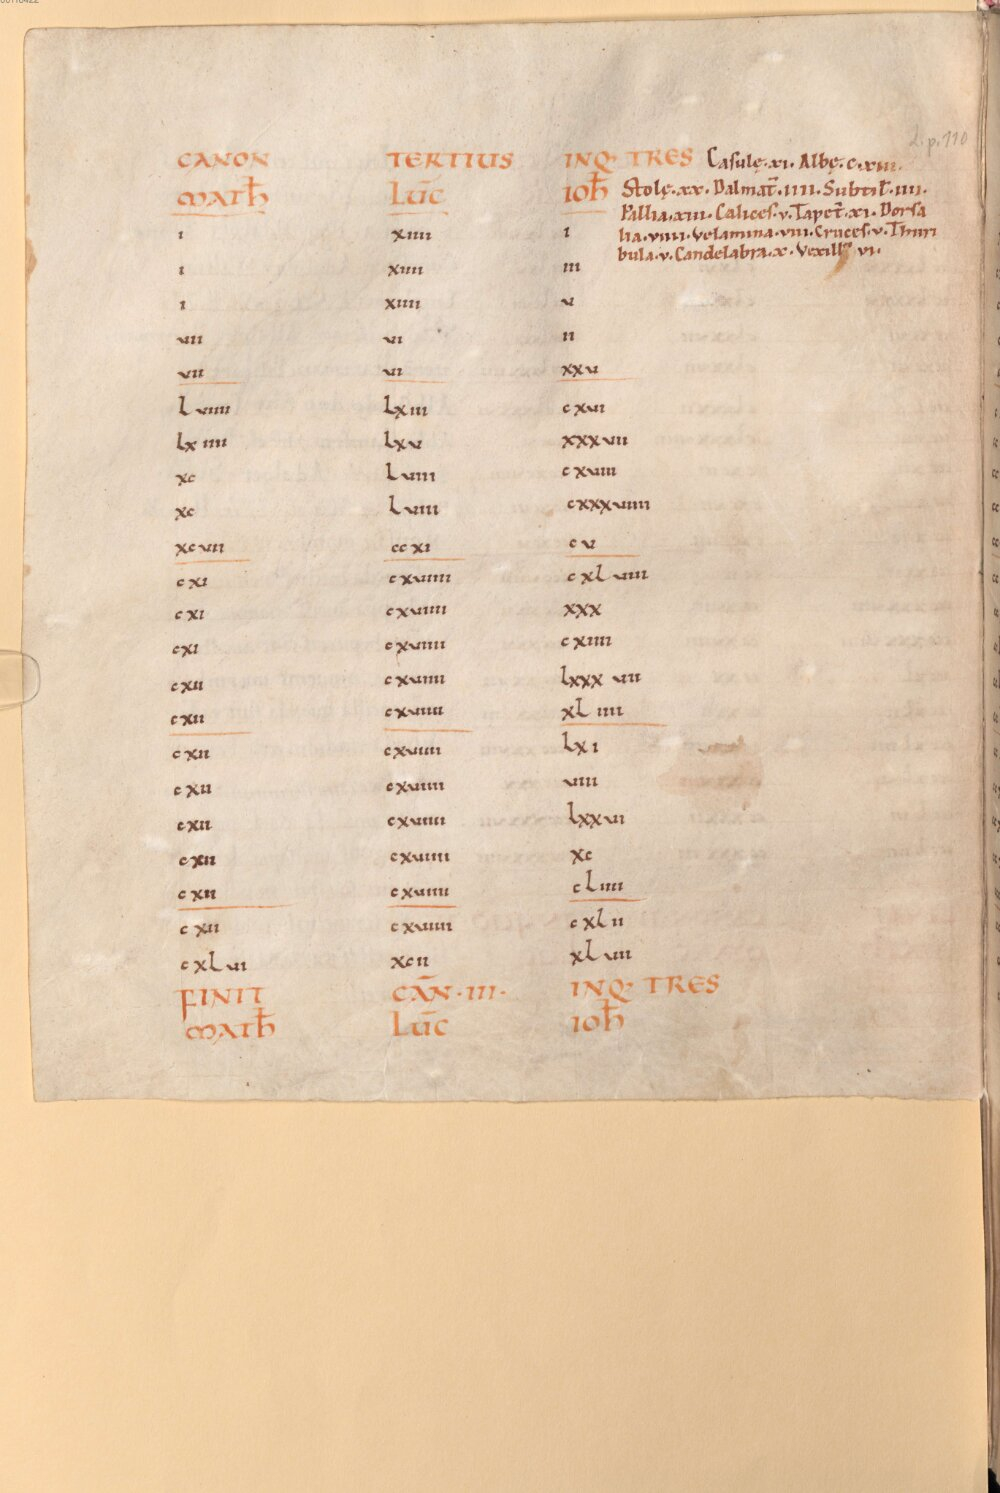 00110422
2. p. 110
CANON TERTIUS INQ· TRES Casulę·xi· Albę·c·xiii·
MATH̄ LŪC IOH̄ Stolę·xx· Dalmat̄·iiii·Subtil̄·iiii·
Pallia·xiii·Calices·v·Tapet̄·xi·Dorsa
i xiiii i lia·viiii·Velamina·viii·Cruces·v·Thuri
bula·v·Candelabra·x·Vexill vi·
i xiiii iii
i xiiii v
vii vi ii
vii vi xxv
lviiii lxiii cxvi
lxiiii lxv xxxvii
xc lviii cxviii
xc lviii cxxxviiii
xcvii ccxi cv
cxi cxviiii cxlviii
cxi cxviiii xxx
cxi cxviiii cxiiii
cxii cxviiii lxxxvii
cxii cxviiii xliiii
cxii cxviiii lxi
cxii cxviiii viii
cxii cxviiii lxxvi
cxii cxviiii xc
cxii cxviiii cliiii
cxii cxviiii cxlii
cxlvi xcii xlviii
FINIT CAN̄·III· INQ· TRES
MATH̄ LŪC IOH̄